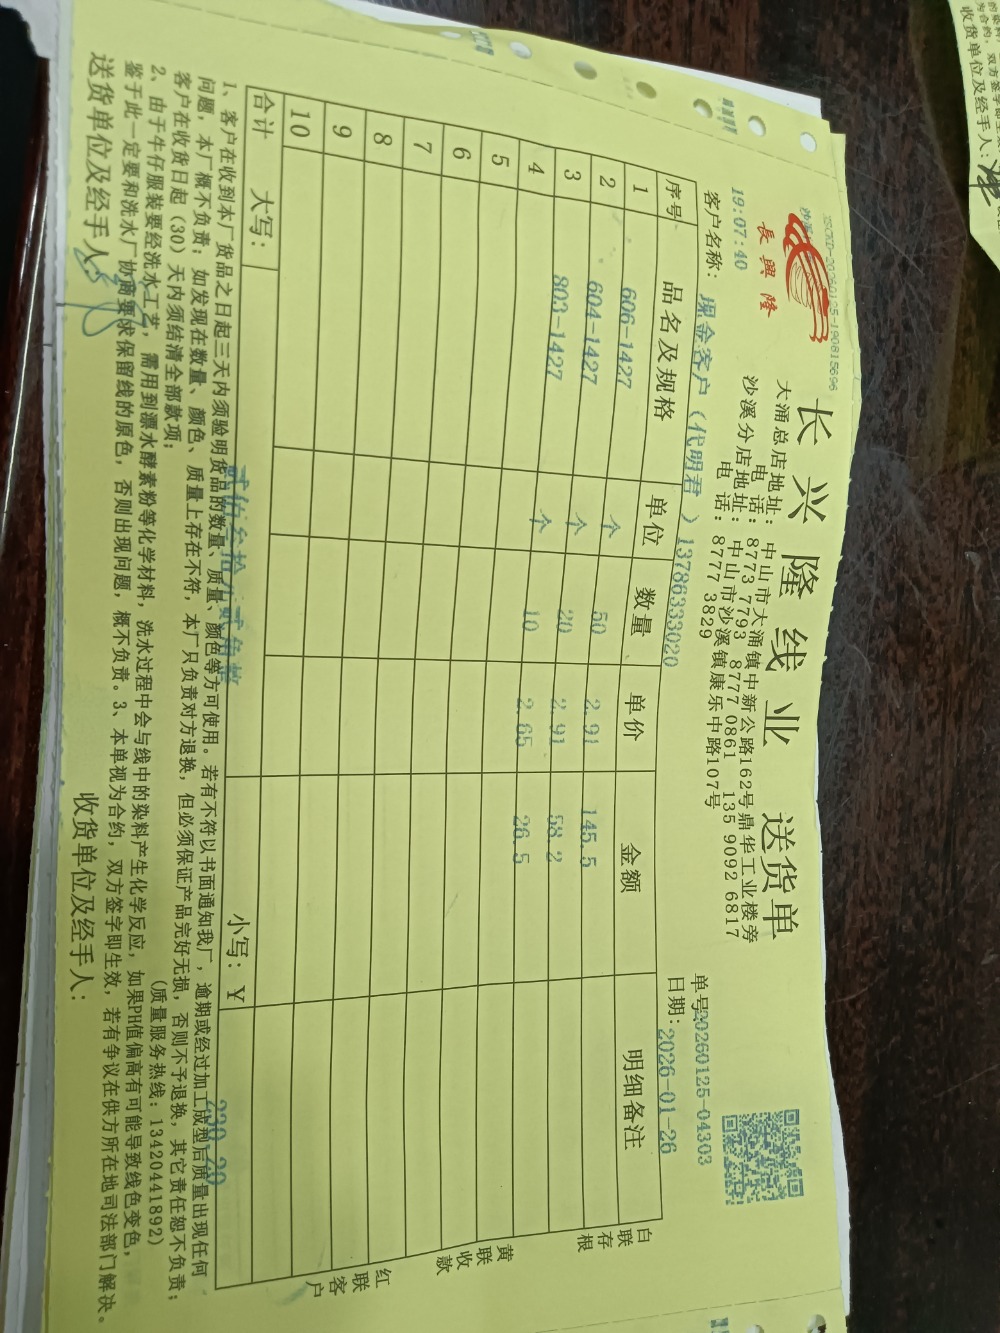 XSCKD-20260125-190815696
長興隆
19:07:40
长兴隆线业 送货单
大涌总店地址：中山市大涌镇中新公路162号鼎华工业楼旁
电 话：8773 7793 8777 0861 135 9092 6817
沙溪分店地址：中山市沙溪镇康乐中路107号
电 话：8777 3829
单号：20260125-04303
客户名称：现金客户（代明君 ）13786333020
日期：2026-01-26
序号 品名及规格 单位 数量 单价 金额 明细备注
1 606-1427 个 50 2.91 145.5
2 604-1427 个 20 2.91 58.2
3 803-1427 个 10 2.65 26.5
4
5
6
7
8
9
10
合计 大写：贰佰叁拾.贰角整 小写：￥ 230.20
白联存根
黄联收款
红联客户
1、客户在收到本厂货品之日起三天内须验明货品的数量、质量、颜色等方可使用。若有不符以书面通知我厂，逾期或经过加工成型后质量出现任何
问题，本厂概不负责；如发现在数量、颜色、质量上存在不符，本厂只负责对方退换，但必须保证产品完好无损，否则不予退换，其它责任恕不负责；
客户在收货日起（30）天内须结清全部款项；
（质量服务热线：13420441892）
2、由于牛仔服装要经洗水工艺，需用到漂水酵素粉等化学材料，洗水过程中会与线中的染料产生化学反应，如果PH值偏高有可能导致线色变色，
鉴于此一定要和洗水厂协商要求保留线的原色，否则出现问题，概不负责。3、本单视为合约，双方签字即生效，若有争议在供方所在地司法部门解决。
送货单位及经手人：
收货单位及经手人：
收货单位及经手人：